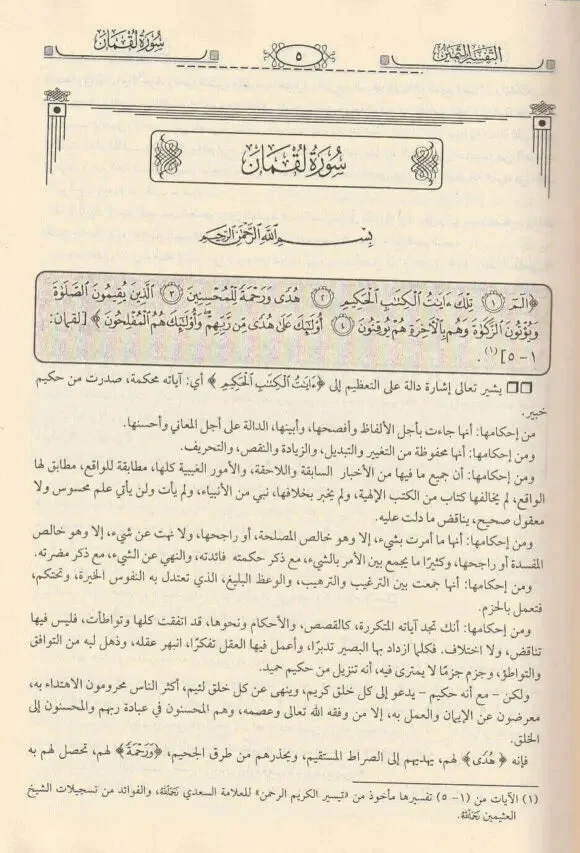 التفسير الثمين
٥
سورة لقمان
سُورَةُ لُقْمَان
بِسْمِ ٱللَّهِ ٱلرَّحْمَٰنِ ٱلرَّحِيمِ
﴿الٓمٓ ۝١ تِلْكَ ءَايَٰتُ ٱلْكِتَٰبِ ٱلْحَكِيمِ ۝٢ هُدًى وَرَحْمَةً لِّلْمُحْسِنِينَ ۝٣ ٱلَّذِينَ يُقِيمُونَ ٱلصَّلَوٰةَ
وَيُؤْتُونَ ٱلزَّكَوٰةَ وَهُم بِٱلْءَاخِرَةِ هُمْ يُوقِنُونَ ۝٤ أُو۟لَٰٓئِكَ عَلَىٰ هُدًى مِّن رَّبِّهِمْ ۖ وَأُو۟لَٰٓئِكَ هُمُ ٱلْمُفْلِحُونَ﴾ [لقمان:
١-٥](١).
يشير تعالى إشارة دالة على التعظيم إلى ﴿ءَايَٰتُ ٱلْكِتَٰبِ ٱلْحَكِيمِ﴾ أي: آياته محكمة، صدرت من حكيم
خبير.
من إحكامها: أنها جاءت بأجل الألفاظ وأفصحها، وأبينها، الدالة على أجل المعاني وأحسنها.
ومن إحكامها: أنها محفوظة من التغيير والتبديل، والزيادة والنقص، والتحريف.
ومن إحكامها: أن جميع ما فيها من الأخبار السابقة واللاحقة، والأمور الغيبية كلها، مطابقة للواقع، مطابق لها
الواقع، لم يخالفها كتاب من الكتب الإلهية، ولم يخبر بخلافها، نبي من الأنبياء، ولم يأت ولن يأتي علم محسوس ولا
معقول صحيح، يناقض ما دلت عليه.
ومن إحكامها: أنها ما أمرت بشيء، إلا وهو خالص المصلحة، أو راجحها، ولا نهت عن شيء، إلا وهو خالص
المفسدة أو راجحها، وكثيرًا ما يجمع بين الأمر بالشيء، مع ذكر حكمته فائدته، والنهي عن الشيء، مع ذكر مضرته.
ومن إحكامها: أنها جمعت بين الترغيب والترهيب، والوعظ البليغ، الذي تعتدل به النفوس الخيرة، وتحتكم،
فتعمل بالحزم.
ومن إحكامها: أنك تجد آياته المتكررة، كالقصص، والأحكام ونحوها، قد اتفقت كلها وتواطأت، فليس فيها
تناقض، ولا اختلاف. فكلما ازداد بها البصير تدبرًا، وأعمل فيها العقل تفكرًا، انبهر عقله، وذهل لبه من التوافق
والتواطؤ، وجزم جزمًا لا يمترى فيه، أنه تنزيل من حكيم حميد.
ولكن - مع أنه حكيم - يدعو إلى كل خلق كريم، وينهى عن كل خلق لئيم، أكثر الناس محرومون الاهتداء به،
معرضون عن الإيمان والعمل به، إلا من وفقه الله تعالى وعصمه، وهم المحسنون في عبادة ربهم والمحسنون إلى
الخلق.
فإنه ﴿هُدًى﴾ لهم، يهديهم إلى الصراط المستقيم، ويحذرهم من طرق الجحيم، ﴿وَرَحْمَةً﴾ لهم، تحصل لهم به
(١) الآيات من (١ - ٥) تفسيرها مأخوذ من «تيسير الكريم الرحمن» للعلامة السعدي رَحِمَهُ ٱللَّهُ، والفوائد من تسجيلات الشيخ
العثيمين رَحِمَهُ ٱللَّهُ.